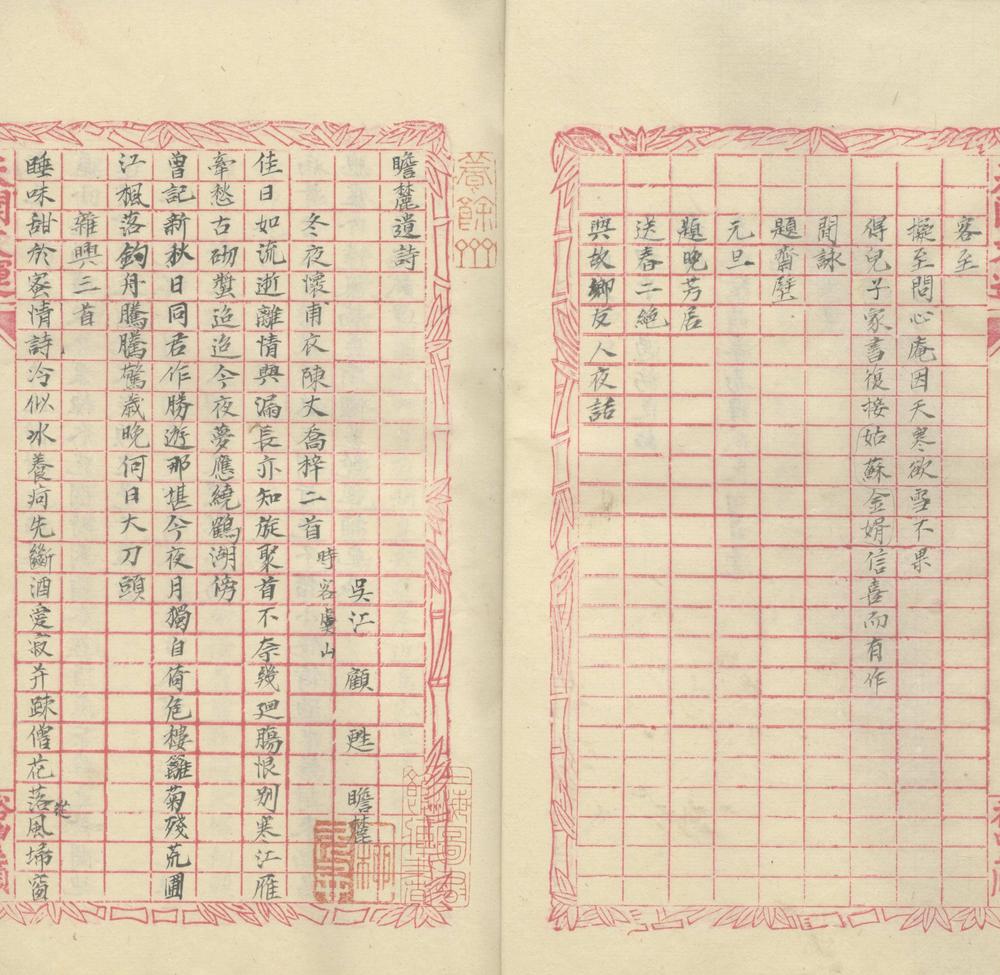 客至
擬至問心庵因天寒欲雪不果
得兒子家書復接姑蘇金婿信喜而有作
閒詠
題齋壁
元旦
題晚芳居
送春二絕
與故鄉友人夜話
瞻麓遺詩
吳江 顧 甦 瞻麓
冬夜懷甫衣陳丈喬梓二首 時客虞山
佳日如流逝離情與漏長亦知旋聚首不奈幾迴腸恨別寒江雁
牽愁古砌螿迢迢今夜夢應繞鶴湖傍
曾記新秋日同君作勝遊那堪今夜月獨自倚危樓籬菊殘荒圃
江楓落釣舟騰騰驚歲晚何日大刀頭
雜興三首
睡味甜於蜜情詩冷似冰養疴先斷酒愛寂并踈僧花落從風埽窗